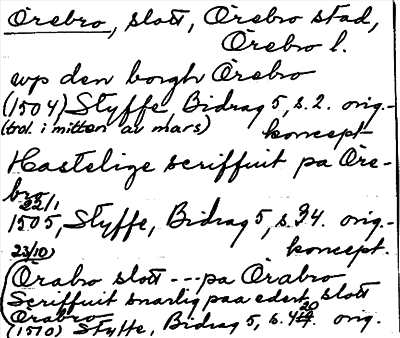 Örebro, slott, Örebro stad,
Örebro l.
wp den borgh Örebro
(1504) Styffe, Bidrag 5, s. 2. orig.-
(trol. i mitten av mars) koncept
Hastelige scriffuit pa Öre-
bro
22/1
1505, Styffe, Bidrag 5, s. 34. orig.-
koncept.
23/10)
(Örabro slott --- pa Örabro
Scriffuit snarlig paa edert slott
Örabro
(1510) Styffe, Bidrag 5, s. orig.